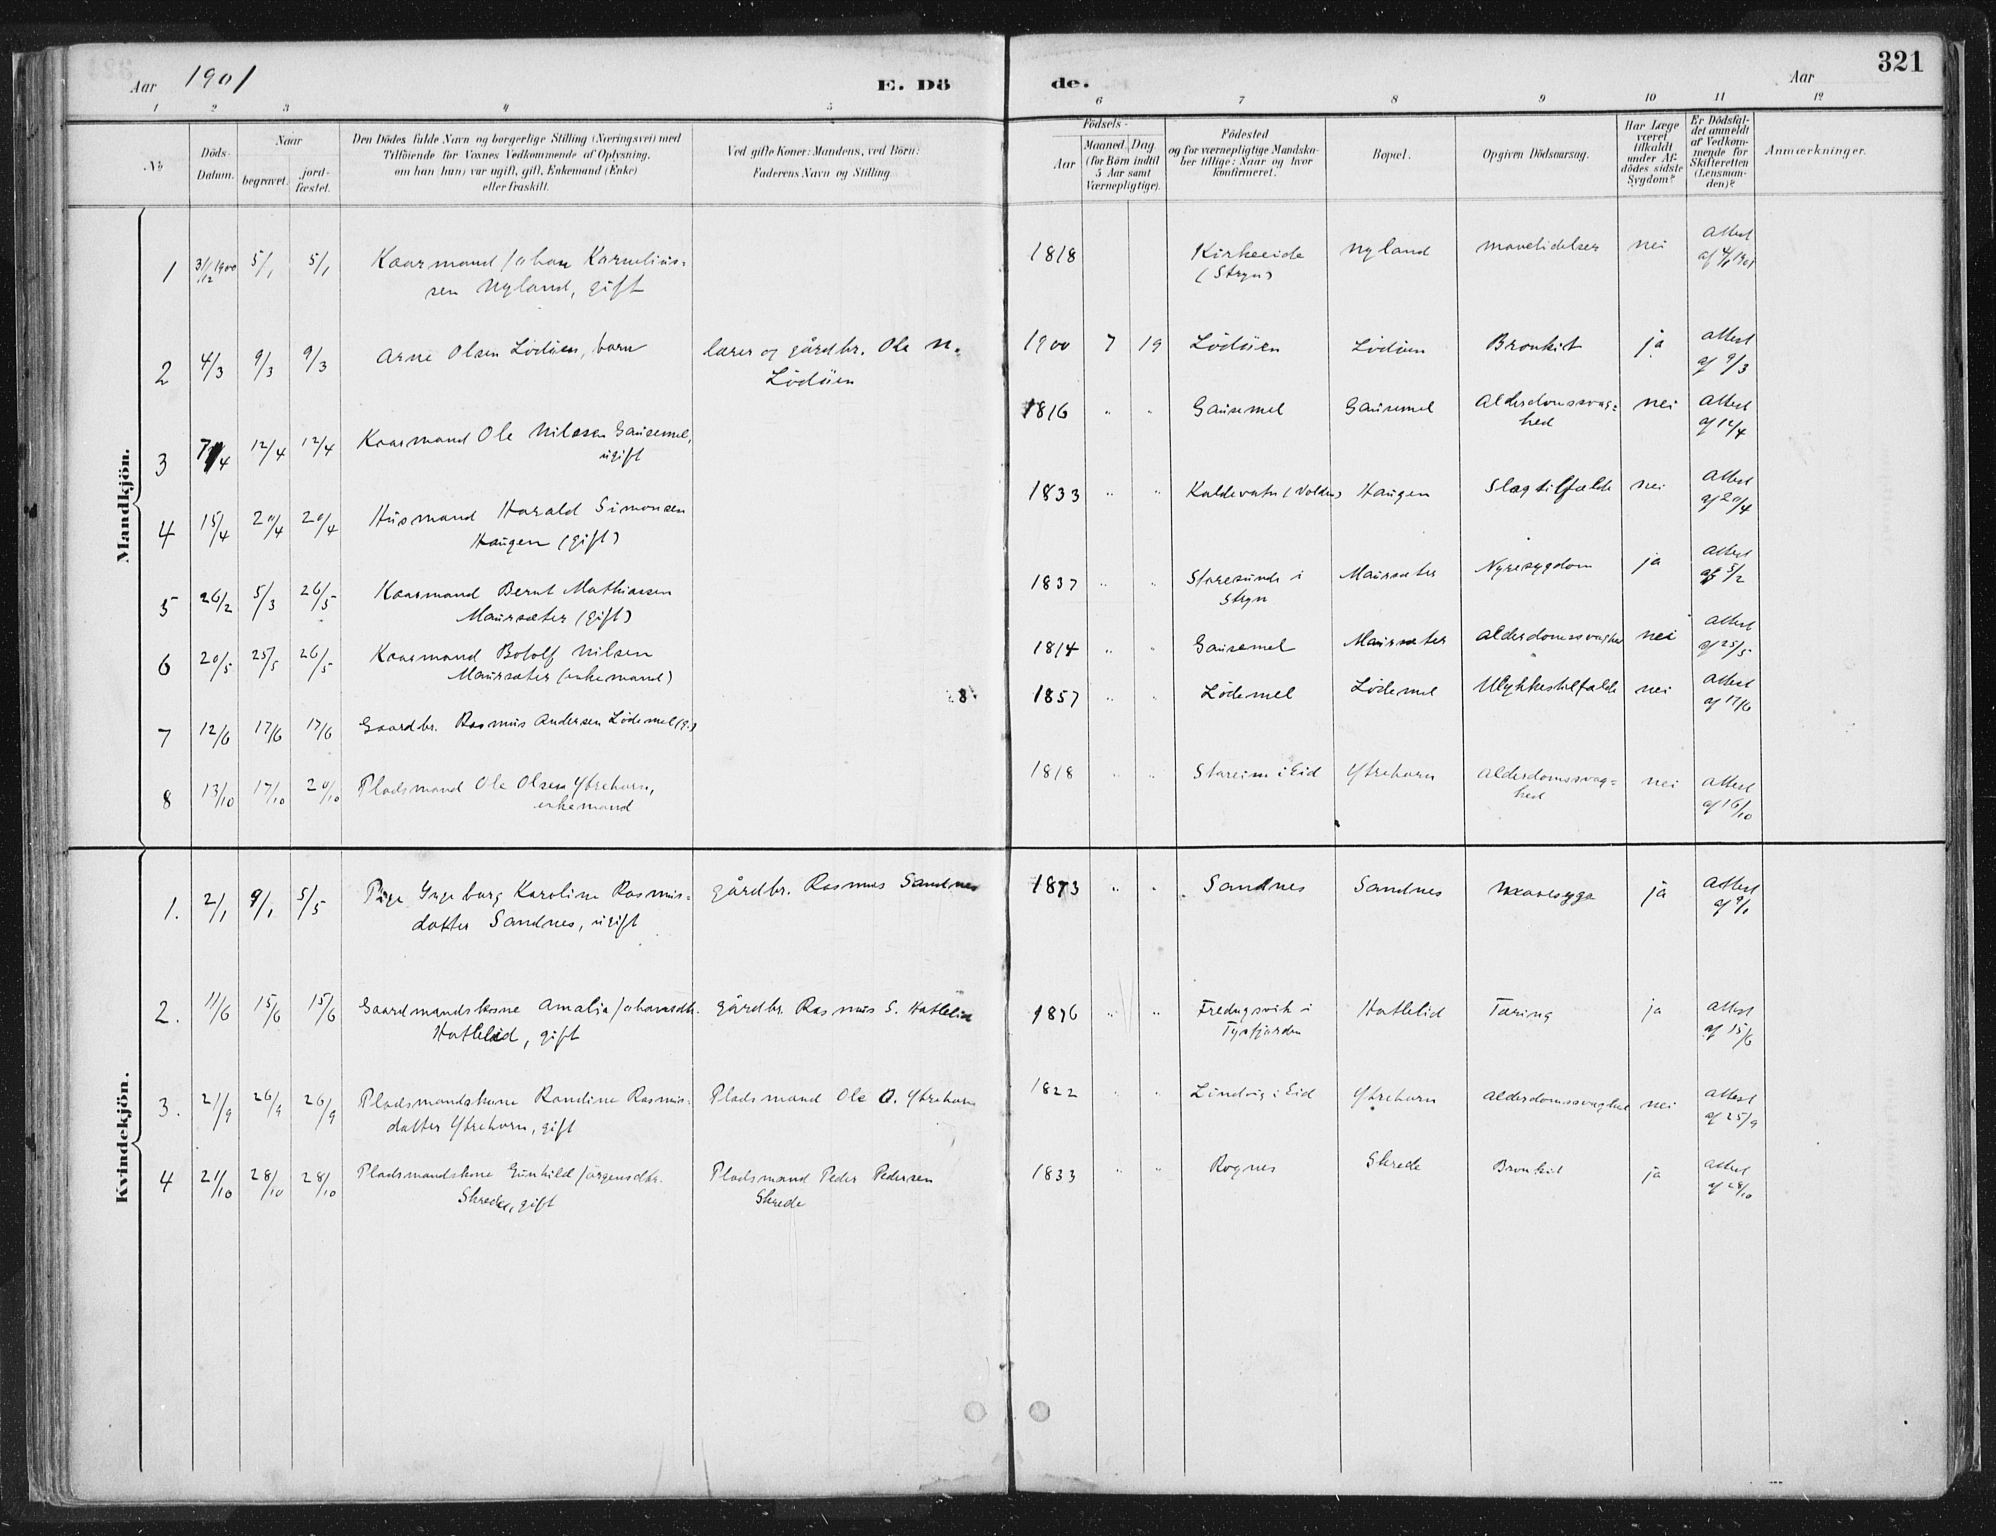 321
Aar 1901 E. Dö de. Aar
1 2 3 4 5 6 7 8 9 10 11 12
No
Döds-Datum.
Naar
begravet. jordfæstet.
Den Dödes fulde Navn og borgerlige Stilling (Næringsvei) med
Tilföiende for Voxnes Vedkommende af Oplysning,
om han (hun) var ugift, gift, Enkemand (Enke)
eller fraskilt.
Ved gifte Koner: Mandens, ved Börn:
Faderens Navn og Stilling.
Födsels-
Aar Maaned. Dag
(for Börn indtil
5 Aar samt
Værnepligtige).
Födested
og for værnepligtige Mandskaber tillige: Naar og hvor konfirmeret.
Bopæl.
Opgiven Dödsaarsag.
Har Læge været tilkaldt under Afdödes sidste Sygdom?
Er Dödsfaldet anmeldt af Vedkommende for Skifteretten (Lensmanden)?
Anmærkninger.
Mandkjön.
1 31/12 1900 5/1 5/1 Kaarmand Johan Kornelius= 1818 Kirkeeide Nyland Mavelidelser nei Attest
sen Nyland, gift (Stryn) af 4/1 1901
2 4/3 9/3 9/3 Arne Olsen Lödöen, barn lærer og gårdbr. Ole N. 1900 7 19 Lödöen Lödöen Bronkit ja Attest
Lödöen af 9/3
3 7/4 12/4 12/4 Kaarmand Ole Nilssen Gausemel, 1816 " " Gausemel Gausemel Alderdomssvag= nei Attest
ugift hed af 12/4
4 15/4 20/4 20/4 Husmand Harald Simonsen 1833 " " Kaldevatn (Volden) Haugen Slagtilfælde nei Attest
Haugen (gift) af 20/4
5 26/2 5/3 26/5 Kaarmand Bernt Mathiassen 1837 " " Staresunde i Maursæter Nyresygdom ja Attest
Maursæter (gift) Stryn af 5/2
6 20/5 25/5 26/5 Kaarmand Botolf Nilsen 1814 " " Gausemel Maursæter Alderdomssvaghed nei Attest
Maursæter (enkemand) af 25/5
7 12/6 17/6 17/6 Gaardbr. Rasmus Andersen Lödemel (g.) 1857 " " Lödemel Lödemel Ulykkestilfælde nei Attest
af 17/6
8 13/10 17/10 20/10 Pladsmand Ole Olsen Ytrehorn, 1818 " " Stareim i Eid Ytrehorn Alderdomssvag= nei Attest
enkemand hed af 16/10
Kvindekjön.
1. 2/1 9/1 5/5 Pige Ingeborg Karoline Rasmus= gårdbr. Rasmus Sandnes 1873 " " Sandnes Sandnes Mavesyge ja Attest
datter Sandnes, ugift af 9/1
2. 11/6 15/6 15/6 Gaardmandskone Amalia Johansdtr. gårdbr. Rasmus S. Hatlelid 1876 " " i Hatlelid Tæring ja Attest
Hatlelid, gift Tysfjorden af 15/6
3. 21/9 26/9 26/9 Pladsmandskone Randine Rasmus= Pladsmand Ole O. Ytrehorn 1822 " " Lindvig i Eid Ytrehorn Alderdomssvaghed nei Attest
datter Ytrehorn, gift af 25/9
4 21/10 28/10 28/10 Pladsmandskone Gunhild Jörgensdtr. Pladsmand Peder Pedersen 1833 " " Rognes Skrede Bronkit ja Attest
Skrede, gift Skrede af 28/10